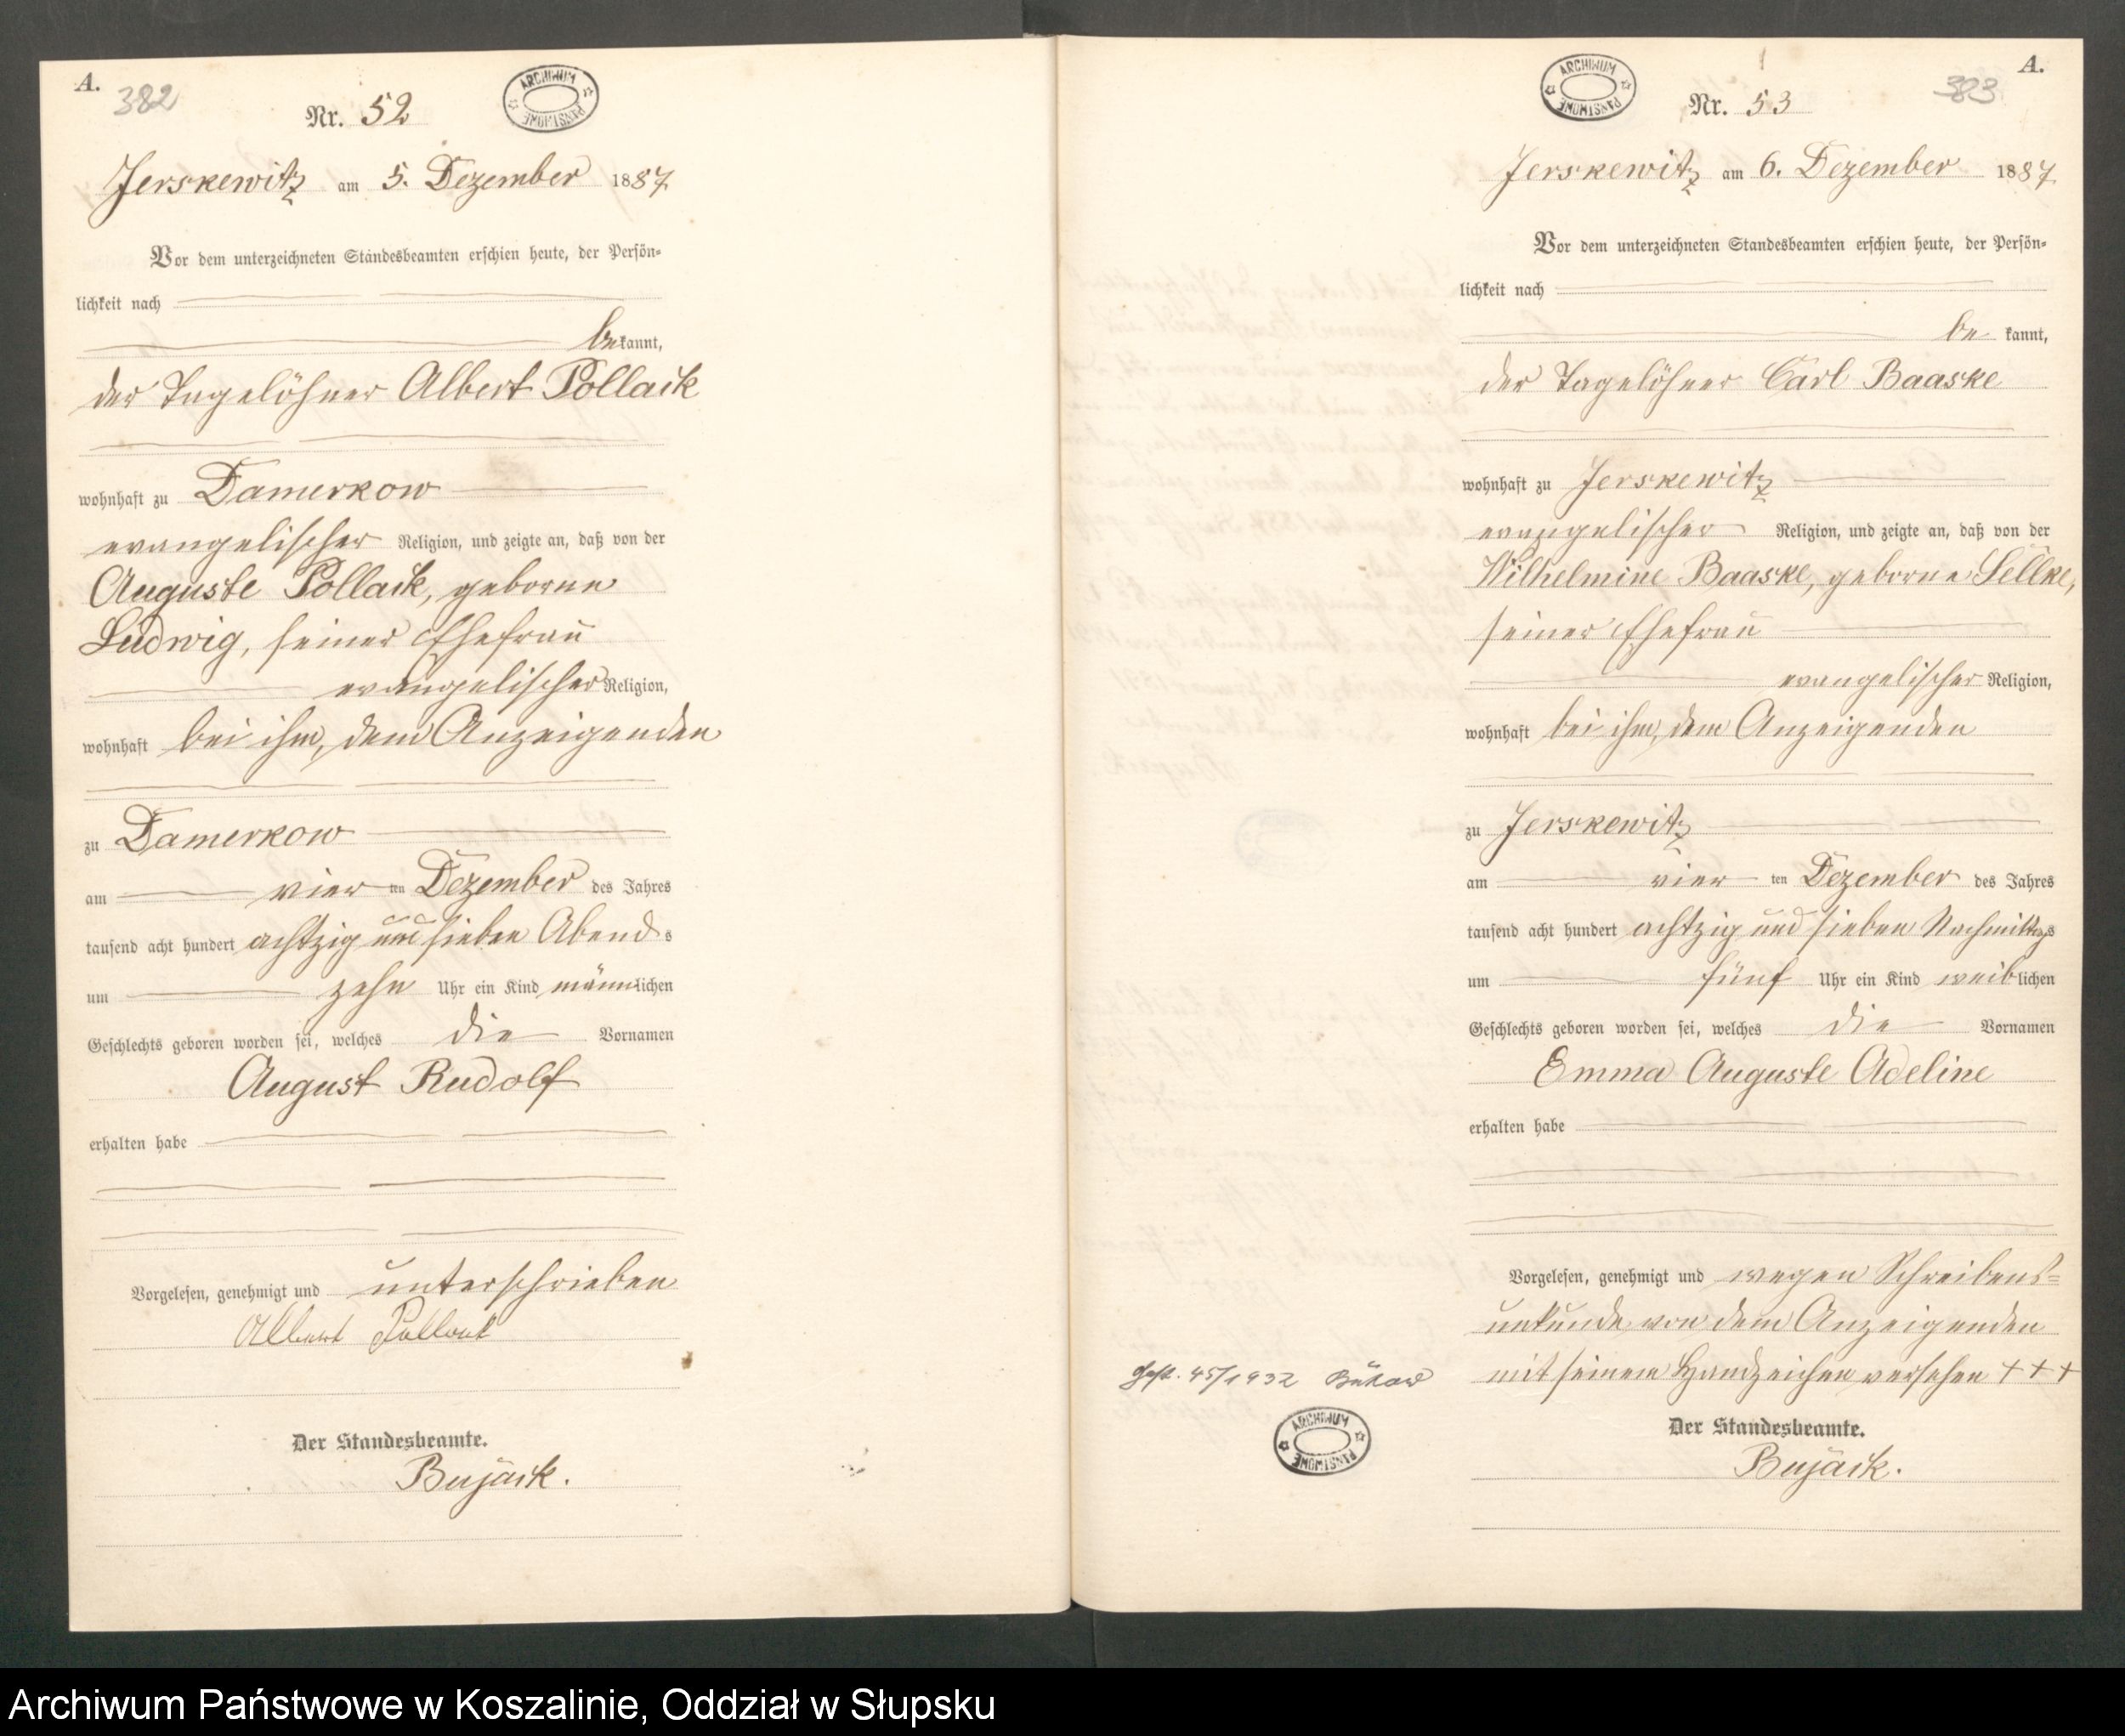 A.
382
ARCHIWUM PAŃSTWOWE
Nr. 52
Jerskewitz am 5. Dezember 1887
Vor dem unterzeichneten Standesbeamten erschien heute, der Persön-
lichkeit nach
bekannt,
der Tagelöhner Albert Pollack
wohnhaft zu Damerkow
evangelischer Religion, und zeigte an, daß von der
Auguste Pollack, geborne
Ludwig, seiner Ehefrau
evangelischer Religion,
wohnhaft bei ihm, dem Anzeigenden
zu Damerkow
am vier ten Dezember des Jahres
tausend acht hundert achtzig und sieben Abends
um zehn Uhr ein Kind männlichen
Geschlechts geboren worden sei, welches die Vornamen
August Rudolf
erhalten habe
Vorgelesen, genehmigt und unterschrieben
Albert Pollack
Der Standesbeamte.
Bujack.
A.
383
ARCHIWUM PAŃSTWOWE
Nr. 53
Jerskewitz am 6. Dezember 1887
Vor dem unterzeichneten Standesbeamten erschien heute, der Persön-
lichkeit nach
bekannt,
der Tagelöhner Carl Baaske
wohnhaft zu Jerskewitz
evangelischer Religion, und zeigte an, daß von der
Wilhelmine Baaske, geborne Sellke,
seiner Ehefrau
evangelischer Religion,
wohnhaft bei ihm, dem Anzeigenden
zu Jerskewitz
am vier ten Dezember des Jahres
tausend acht hundert achtzig und sieben Nachmittags
um fünf Uhr ein Kind weiblichen
Geschlechts geboren worden sei, welches die Vornamen
Emma Auguste Adeline
erhalten habe
Vorgelesen, genehmigt und wegen Schreibens-
unkunde von dem Anzeigenden
mit seinem Handzeichen versehen + + +
Der Standesbeamte.
Bujack.
45/1932 Bütow
ARCHIWUM PAŃSTWOWE
Archiwum Państwowe w Koszalinie, Oddział w Słupsku